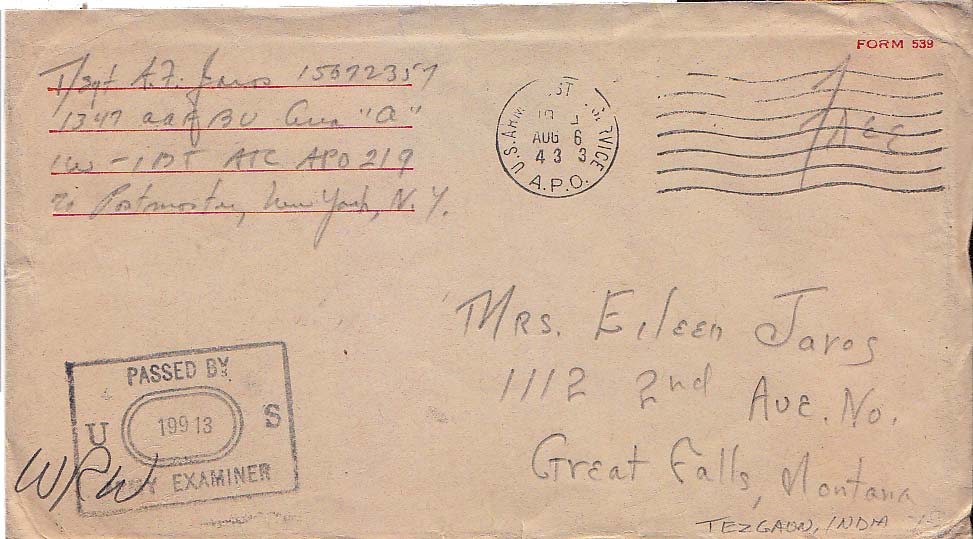 FORM 539
T/Sgt A.F. Jaros 15072357
1347 AAF BU Area "A"
ATC APO 219
c/o Postmaster, New York, N.Y.
U.S. ARMY SERVICE
AUG 6
A.P.O.
Free
Mrs. Eileen Jaros
1112 2nd
Ave. No.
Great Falls, Montana
TEZGAON, INDIA
PASSED BY
U 19913 S
EXAMINER
WRW